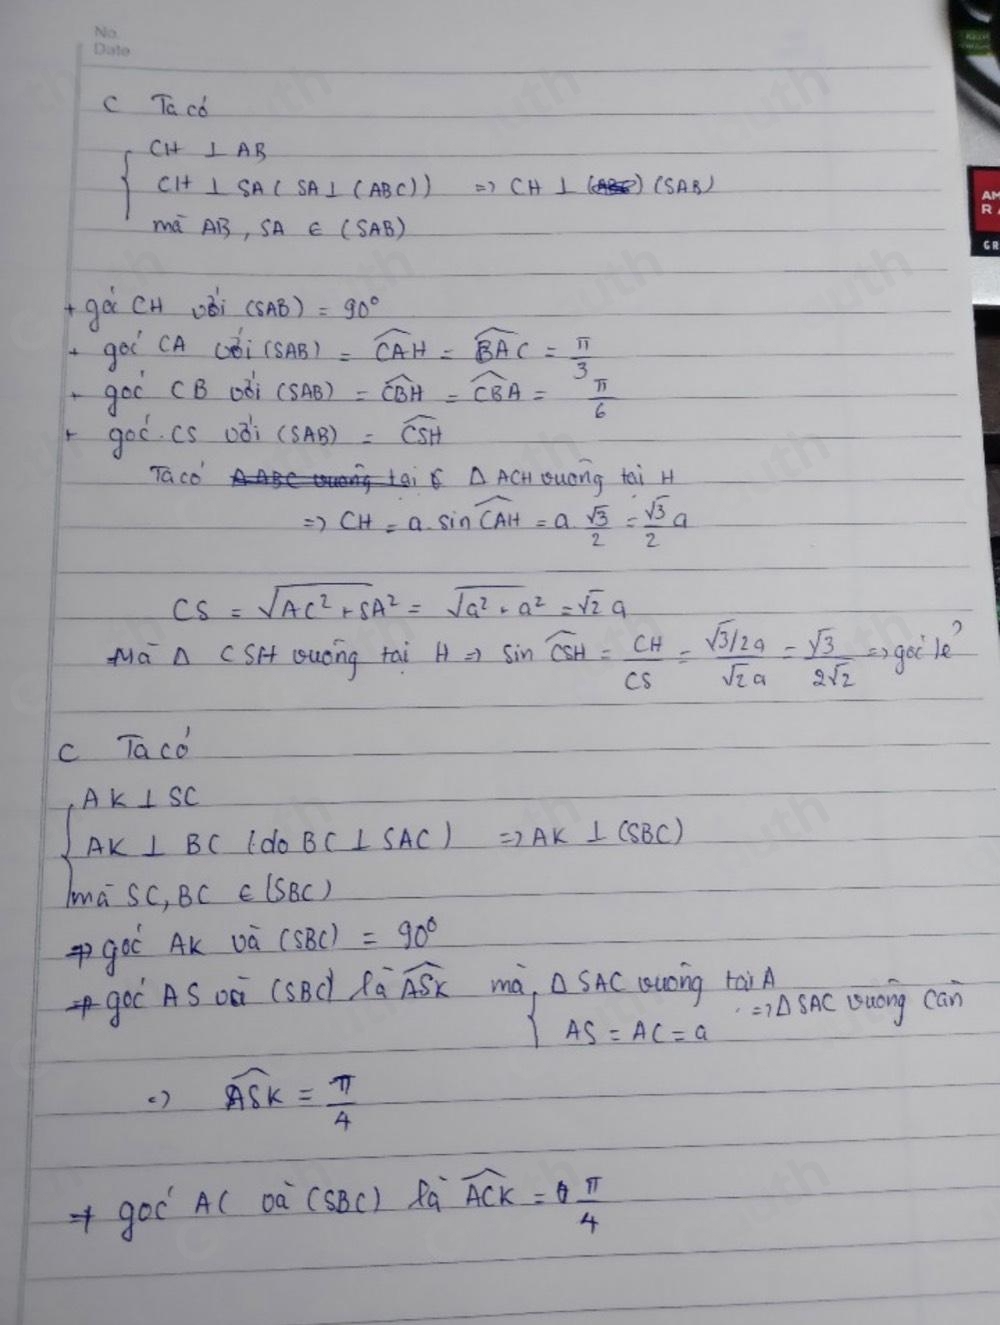 No.
Date
C Ta có
CH ⊥ AB
CH ⊥ SA ( SA ⊥ (ABC)) => CH ⊥ (SAB)
mà AB, SA ∈ (SAB)
+ góc CH với (SAB) = 90°
+ góc CA với (SAB) = \widehat{CAH} = \widehat{BAC} = π/3
- góc CB với (SAB) = \widehat{CBH} = \widehat{CBA} = π/6
+ góc CS với (SAB) = \widehat{CSH}
Ta có Δ ACH vuông tại H
=> CH = a sin \widehat{CAH} = a √3/2 = √3/2 a
CS = √(AC² + SA²) = √(a² + a²) = √2 a
Mà Δ CSH vuông tại H => sin \widehat{CSH} = CH/CS = (√3/2a)/(√2a) = √3/(2√2) => góc lẻ
C Ta có
AK ⊥ SC
AK ⊥ BC (do BC ⊥ SAC) => AK ⊥ (SBC)
mà SC, BC ∈ (SBC)
=> góc AK và (SBC) = 90°
=> góc AS và (SBC) là \widehat{ASK} mà Δ SAC vuông tại A
AS = AC = a => Δ SAC vuông cân
=> \widehat{ASK} = π/4
=> góc AC và (SBC) là \widehat{ACK} = π/4
AM
RA
GR